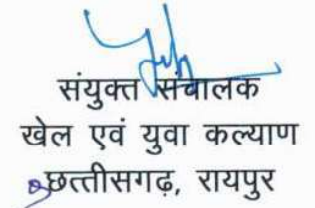 संयुक्त संचालक
खेल एवं युवा कल्याण
छत्तीसगढ़, रायपुर